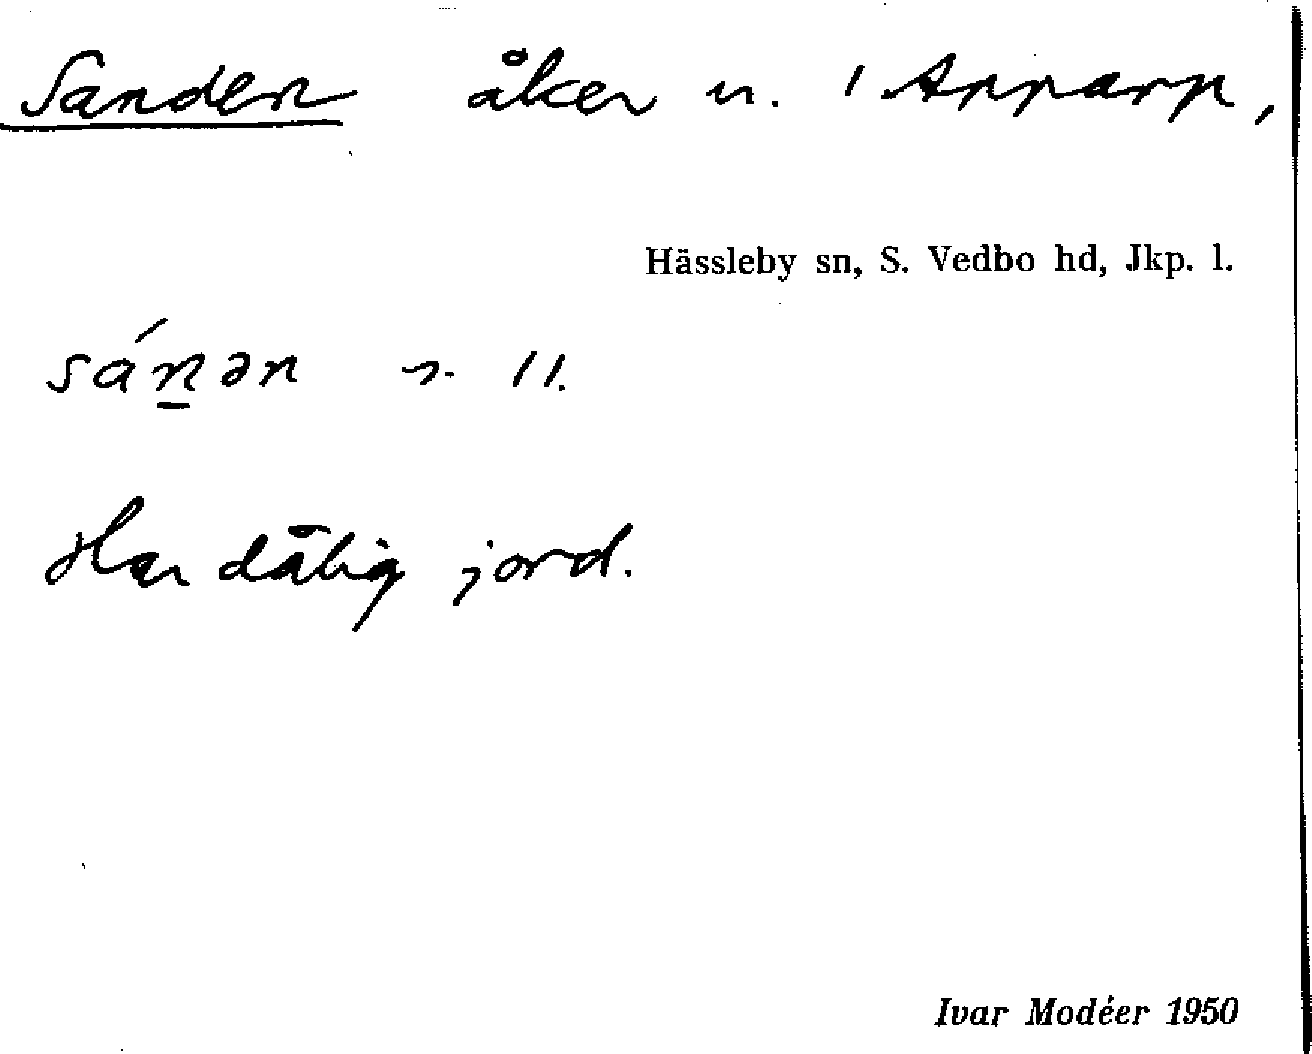 Sanden åker n. i Apparp,
Hässleby sn, S. Vedbo hd, Jkp. l.
sánən n. 11.
Har dålig jord.
Ivar Modéer 1950